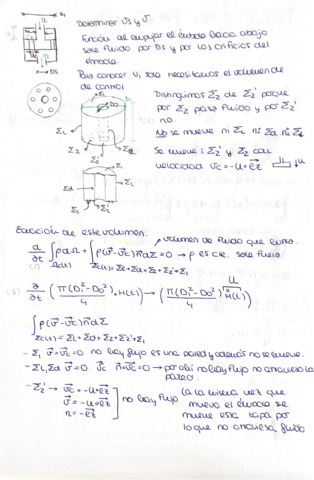 D1
u
DS
Determinar Vs y V
Función al empujar el émbolo hacia abajo
sale fluido por DS y por los orificios del
émbolo.
Para conocer V, solo necesitamos el volumen de
de control
Distinguimos Σ2 de Σ2' porque
por Σ2 pasa fluido y por Σ2'
no.
No se mueve ni ΣL ni Σd ni Σ1
Se mueve: Σ2' y Σ2 con
velocidad vc = -u·ez
Ecuación de este volumen:
d/dt ∫ ρdΩ + ∫ ρ(v-vc)n dΣ = 0 → ρ es cte.
Ωc(t) Σc(t) = ΣL+Σd+Σ2+Σ2'+Σ1
volumen de fluido que entra.
sale fuera
∂/∂t (π(D1²-D0²)/4 · H(t)) → (π(D1²-D0²)/4 H(t))
∫ ρ(v-vc) n dΣ
Σc(t) = ΣL+Σd+Σ2+Σ2'+Σ1
- Σ1 v=vc=0 no hay flujo es una pared y además no se mueve.
- ΣL, Σd v=0 vc n·vc=0 → por ahí no hay flujo no atraviesa la
pared.
- Σ2' → vc = -u·ez
v = -u·ez
n = -ez
no hay flujo (a la misma vez que
muevo el émbolo se
mueve esta tapa por
lo que no atraviesa fluido